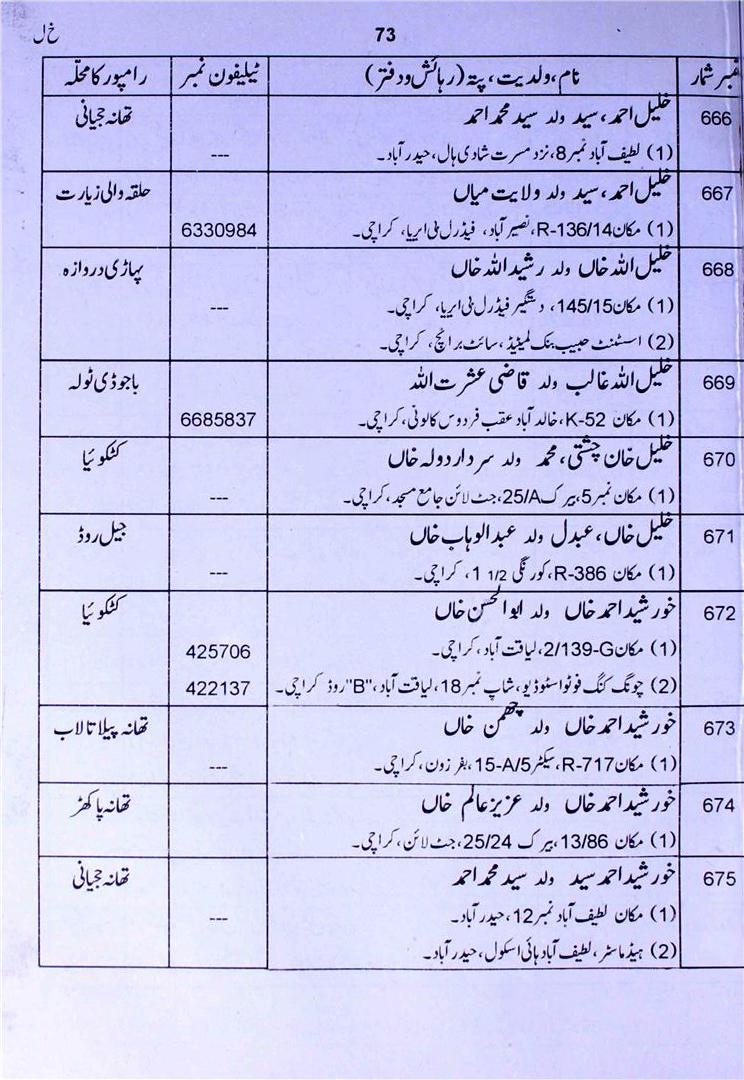 خ ل
73
نمبر شمار	نام، ولدیت، پتہ (رہائش و دفتر)	ٹیلیفون نمبر	رامپور کا محلّہ
666	خلیل احمد، سید ولد سید محمد احمد	تھانہ جیانی
(1) لطیف آباد نمبر 8، نزد مسرت شادی ہال، حیدر آباد۔	---
667	خلیل احمد، سید ولد ولایت میاں	حلقہ والی زیارت
(1) مکان R-136/14، نصیر آباد، فیڈرل بی ایریا، کراچی۔	6330984
668	خلیل اللہ خاں ولد رشید اللہ خاں	پہاڑی دروازہ
(1) مکان 145/15، دستگیر فیڈرل بی ایریا، کراچی۔	---
(2) اسسٹنٹ حبیب بنک لمیٹیڈ، سائٹ برانچ، کراچی۔
669	خلیل اللہ غالب ولد قاضی عشرت اللہ	باجوڈی ٹولہ
(1) مکان K-52، خالد آباد عقب فردوس کالونی، کراچی۔	6685837
670	خلیل خان چشتی، محمد ولد سردار دولہ خاں	کٹکوئیا
(1) مکان نمبر 5، بیرک 25/A، جٹ لائن جامع مسجد، کراچی۔	---
671	خلیل خاں، عبدل ولد عبدالوہاب خاں	جیل روڈ
(1) مکان R-386، کورنگی 1 1/2، کراچی۔	---
672	خورشید احمد خاں ولد ابوالحسن خاں	کٹکوئیا
(1) مکان 2/139-G، لیاقت آباد، کراچی۔	425706
(2) چونگ کنگ فوٹو اسٹوڈیو، شاپ نمبر 18، لیاقت آباد، "B" روڈ کراچی۔	422137
673	خورشید احمد خاں ولد چھمن خاں	تھانہ پیلا تالاب
(1) مکان R-717، سیکٹر 15-A/5، بفر زون، کراچی۔	---
674	خورشید احمد خاں ولد عزیز عالم خاں	تھانہ پاکھڑ
(1) مکان 13/86، بیرک 25/24، جٹ لائن، کراچی۔
675	خورشید احمد سید ولد سید محمد احمد	تھانہ جیانی
(1) مکان لطیف آباد نمبر 12، حیدر آباد۔	---
(2) ہیڈ ماسٹر، لطیف آباد ہائی اسکول، حیدر آباد۔